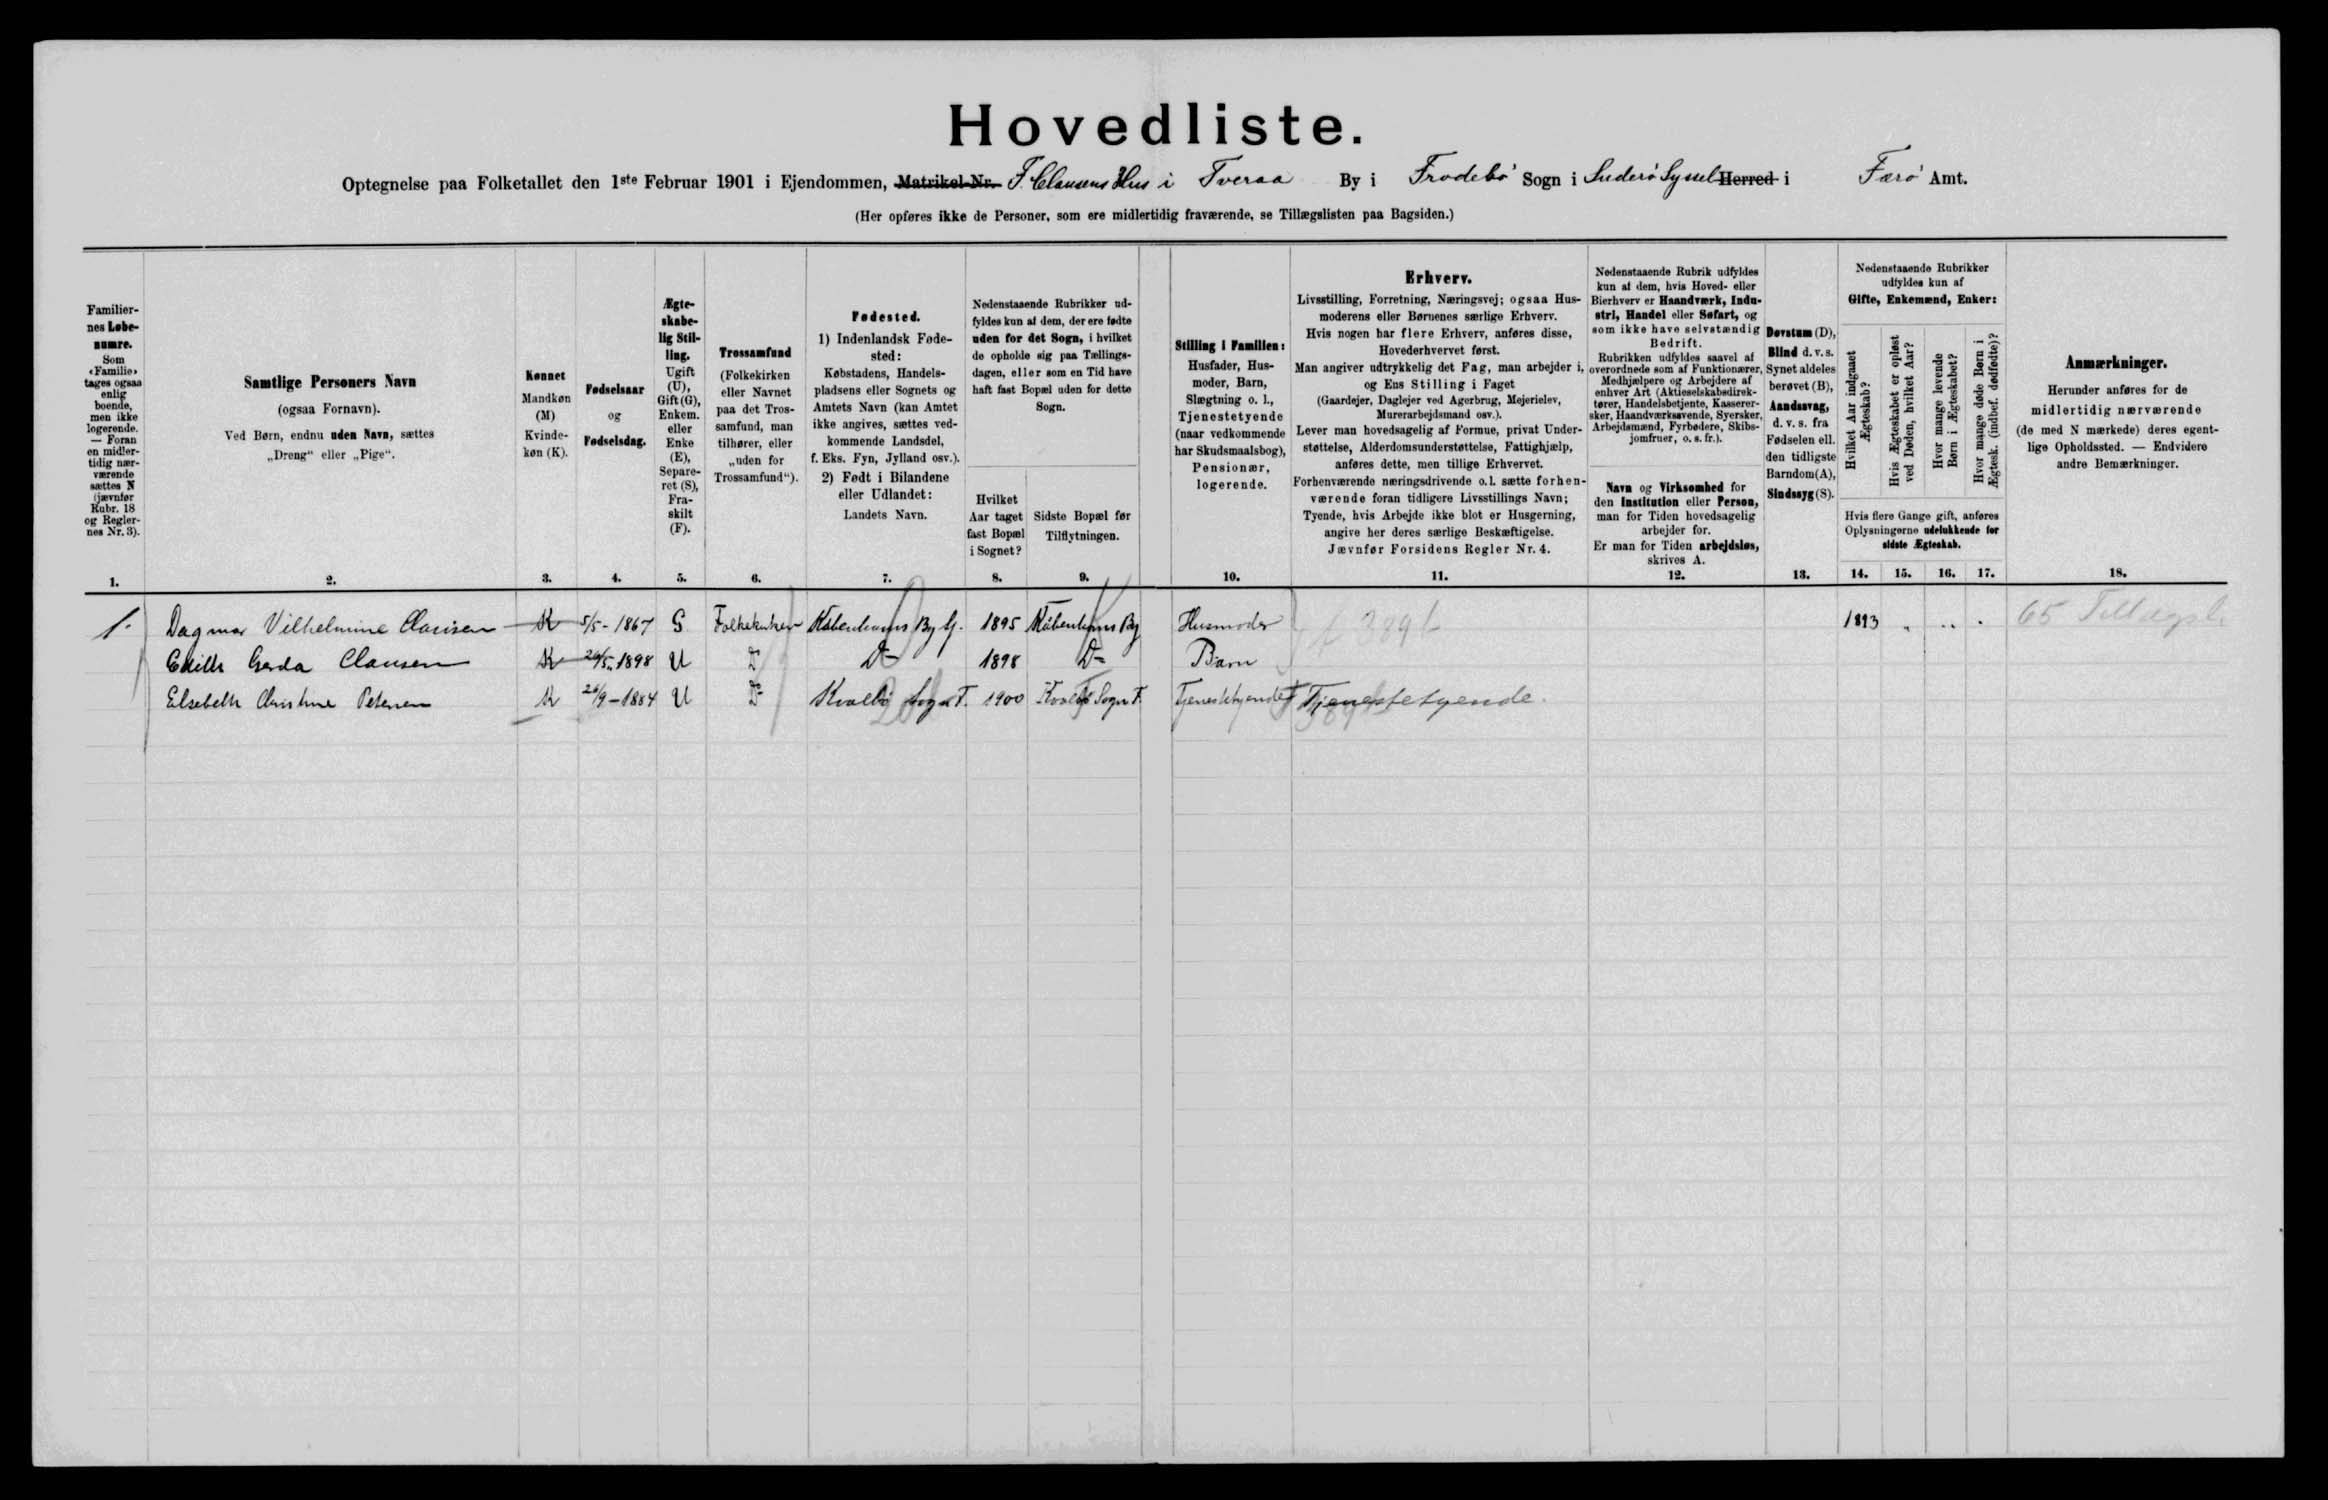 Hovedliste.
Optegnelse paa Folketallet den 1ste Februar 1901 i Ejendommen, Matrikel-Nr. F. Clausens Hus i Tveraa By i Frodebø Sogn i Suderø Syssel Herred i Færø Amt.
(Her opføres ikke de Personer, som ere midlertidig fraværende, se Tillægslisten paa Bagsiden.)
Familier-
nes Løbe-
numre.
Som
«Familie»
tages ogsaa
enlig
boende,
men ikke
logerende.
— Foran
en midler-
tidig nær-
værende
sættes N
(jævnfør
Rubr. 18
og Regler-
nes Nr. 3).
1.
Samtlige Personers Navn
(ogsaa Fornavn).
Ved Børn, endnu uden Navn, sættes
„Dreng“ eller „Pige“.
2.
Kønnet
Mandkøn
(M)
Kvinde-
køn (K).
3.
Fødselsaar
og
Fødselsdag.
4.
Ægte-
skabe-
lig Stil-
ling.
Ugift
(U),
Gift (G),
Enkem.
eller
Enke
(E),
Separe-
ret (S),
Fra-
skilt
(F).
5.
Trossamfund
(Folkekirken
eller Navnet
paa det Tros-
samfund, man
tilhører, eller
„uden for
Trossamfund“).
6.
Fødested.
1) Indenlandsk Føde-
sted:
Købstadens, Handels-
pladsens eller Sognets og
Amtets Navn (kan Amtet
ikke angives, sættes ved-
kommende Landsdel,
f. Eks. Fyn, Jylland osv.).
2) Født i Bilandene
eller Udlandet:
Landets Navn.
7.
Nedenstaaende Rubrikker ud-
fyldes kun af dem, der ere fødte
uden for det Sogn, i hvilket
de opholde sig paa Tællings-
dagen, eller som en Tid have
haft fast Bopæl uden for dette
Sogn.
Hvilket
Aar taget
fast Bopæl
i Sognet?
8.
Sidste Bopæl før
Tilflytningen.
9.
Stilling i Familien:
Husfader, Hus-
moder, Barn,
Slægtning o. l.,
Tjenestetyende
(naar vedkommende
har Skudsmaalsbog),
Pensionær,
logerende.
10.
Erhverv.
Livsstilling, Forretning, Næringsvej; ogsaa Hus-
moderens eller Børnenes særlige Erhverv.
Hvis nogen har flere Erhverv, anføres disse,
Hovederhvervet først.
Man angiver udtrykkelig det Fag, man arbejder i,
og Ens Stilling i Faget
(Gaardejer, Daglejer ved Agerbrug, Mejerielev,
Murerarbejdsmand osv.).
Lever man hovedsagelig af Formue, privat Under-
støttelse, Alderdomsunderstøttelse, Fattighjælp,
anføres dette, men tillige Erhvervet.
Forhenværende næringsdrivende o. l. sætte forhen-
værende foran tidligere Livsstillings Navn;
Tyende, hvis Arbejde ikke blot er Husgerning,
angive her deres særlige Beskæftigelse.
Jævnfør Forsidens Regler Nr. 4.
11.
Nedenstaaende Rubrik udfyldes
kun af dem, hvis Hoved- eller
Bierhverv er Haandværk, Indu-
stri, Handel eller Søfart, og
som ikke have selvstændig
Bedrift.
Rubrikken udfyldes saavel af
overordnede som af Funktionærer,
Medhjælpere og Arbejdere af
enhver Art (Aktieselskabsdirek-
tører, Handelsbetjente, Kasserer-
sker, Haandværkssvende, Syersker,
Arbejdsmænd, Fyrbødere, Skibs-
jomfruer, o. s. fr.).
Navn og Virksomhed for
den Institution eller Person,
man for Tiden hovedsagelig
arbejder for.
Er man for Tiden arbejdsløs,
skrives A.
12.
Døvstum (D),
Blind d. v. s.
Synet aldeles
berøvet (B),
Aandssvag,
d. v. s. fra
Fødselen ell.
den tidligste
Barndom (A),
Sindssyg (S).
13.
Nedenstaaende Rubrikker
udfyldes kun af
Gifte, Enkemænd, Enker:
Hvilket Aar indgaaet
Ægteskab?
Hvis Ægteskabet er opløst
ved Døden, hvilket Aar?
Hvor mange levende
Børn i Ægteskabet?
Hvor mange døde Børn i
Ægtesk. (indbef. dødfødte)?
Hvis flere Gange gift, anføres
Oplysningerne udelukkende for
sidste Ægteskab.
14. 15. 16. 17.
Anmærkninger.
Herunder anføres for de
midlertidig nærværende
(de med N mærkede) deres egent-
lige Opholdssted. — Endvidere
andre Bemærkninger.
18.
1. Dagmar Vilhelmine Clausen K 5/5-1867 G Folkekirken Københavns By 1895 Københavns By Husmoder 1893 65 Tillægsl.
Edith Gerda Clausen K 26/5-1898 U D° D° 1898 D° Barn
Elsebeth Christine Petersen K 26/9-1884 U D° Kvalbø Sogn F. 1900 Kvalbø Sogn F. Tjenestetyende Tjenestetyende.